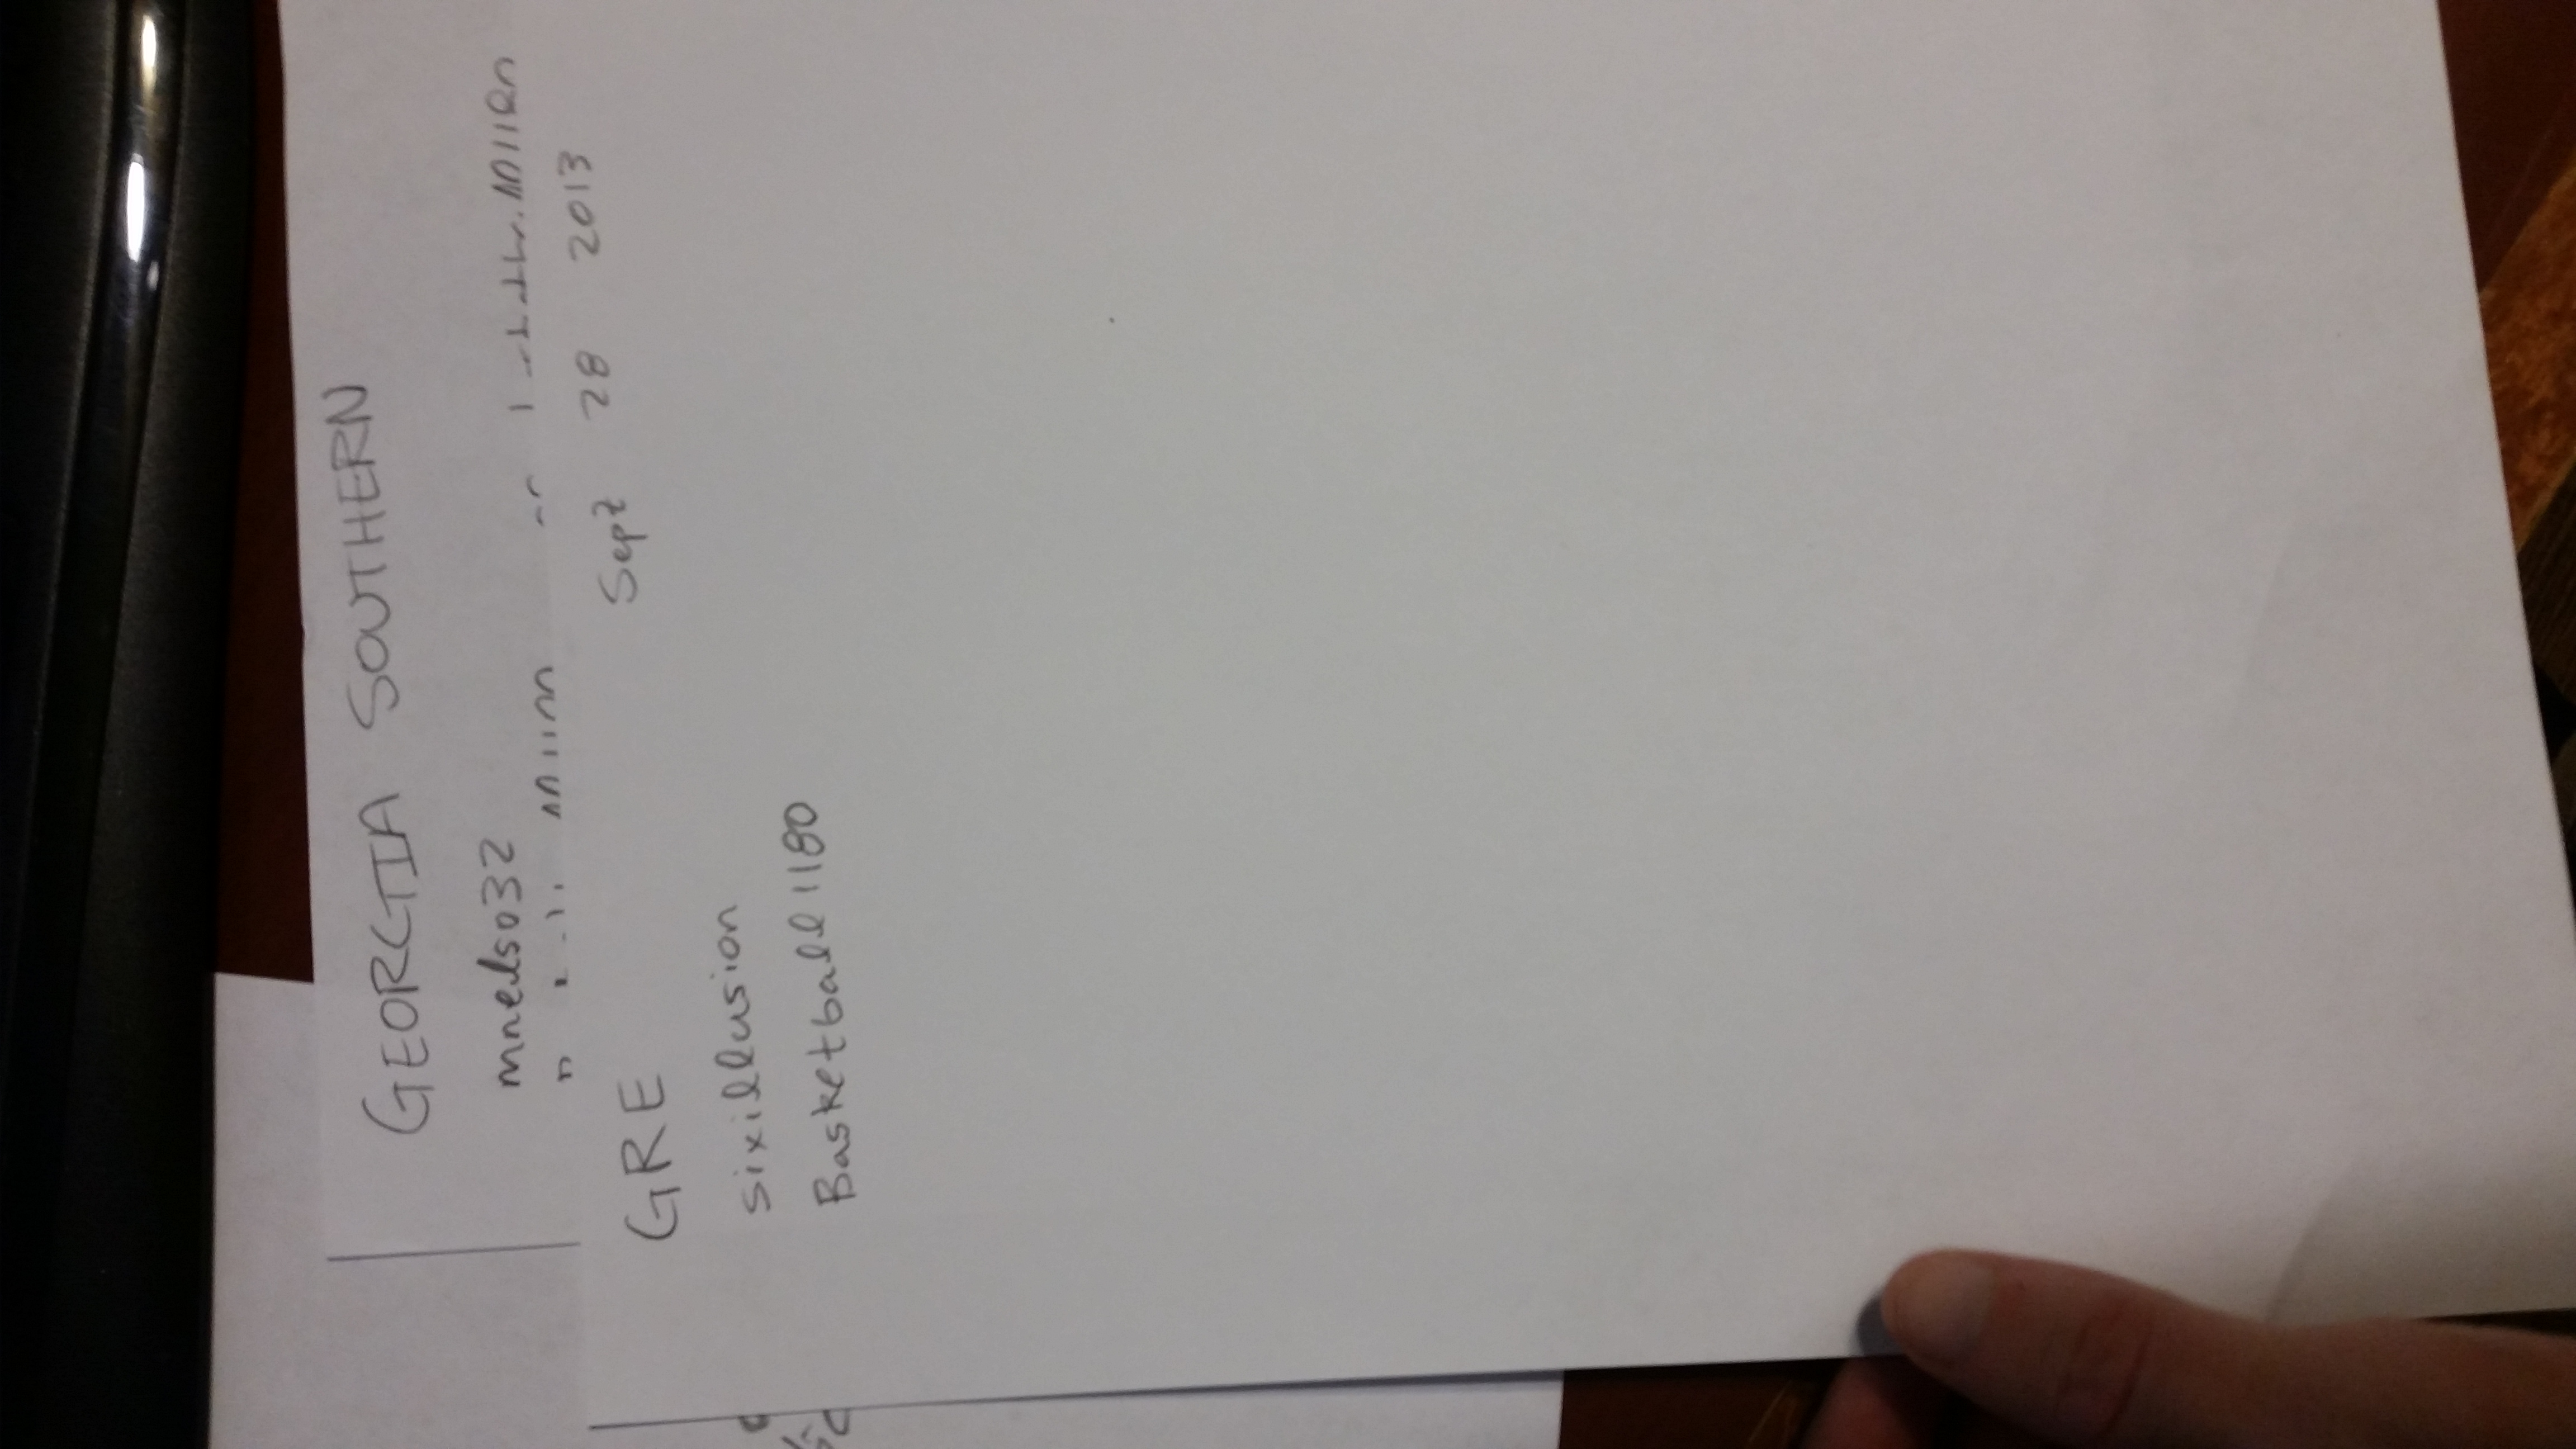 GEORGIA SOUTHERN
mnelso32
GRE Sept 28 2013
sixillusion
Basketball1180